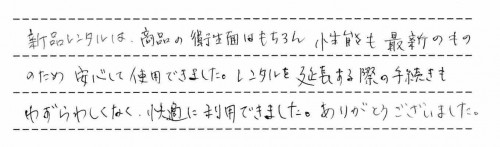 新品レンタルは、商品の衛生面はもちろん 性能も最新のもの
のため 安心して使用できました。レンタルを延長する際の手続きも
わずらわしくなく、快適に利用できました。ありがとうございました。